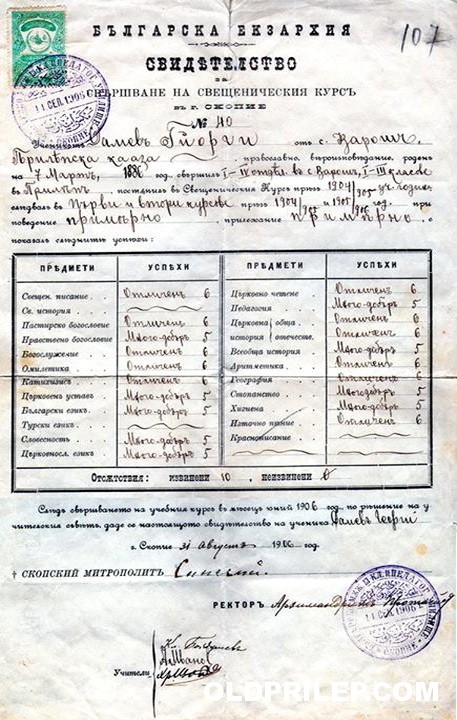 107
БЪЛГАРСКА ЕКЗАРХИЯ
СВИДѢТЕЛСТВО
за
СВЪРШВАНЕ НА СВЕЩЕНИЧЕСКИЯ КУРСЪ
ВЪ Г. СКОПИЕ
№ 40
Ученикътъ Галевъ Гйорги отъ с. Варошъ
Прилѣпска кааза православно вѣроизповѣдание, роденъ
на 7 Мартъ, 1886 год. свършилъ I–IV отдѣл. въ с Варошъ, I–III класове
въ Прилѣпъ постѫпилъ въ Свещеническия Курсъ прѣзъ 1904/905 уч. година
слѣдвалъ въ първи и втори курсове прѣзъ 1904/905 и 1905/906 год. при
поведение примѣрно, прилежание примѣрно. е
показалъ слѣднитѣ успѣхи:
ПРѢДМЕТИ УСПѢХИ
Свещен. писание Отличенъ 6
Св. история
Пастирско богословие Отличенъ 6
Нравствено богословие Много-добъръ 5
Богослужение Отличенъ 6
Омилетика Отличенъ 6
Катихизисъ Отличенъ 6
Църковенъ уставъ Много-добъръ 5
Български езикъ Много-добъръ 5
Турски езикъ
Словесность Много-добъръ 5
Църковносл. езикъ Много-добъръ 5
ПРѢДМЕТИ УСПѢХИ
Църковно четене Отличенъ 6
Педагогия Много-добъръ 5
Църковна обща Отличенъ 6
история отечеств. Отличенъ 6
Всеобща история Много-добъръ 5
Аритметика Отличенъ 6
География Отличенъ 6
Стопанство Много-добъръ 5
Хигиена Много-добъръ 5
Источно пѣние Отличенъ 6
Краснописание
Отсѫтствия: извинени 10, неизвинени 0
Слѣдъ свършването на учебния курсъ въ мѣсецъ юний 1906 год. по рѣшение на у-
чителския съвѣтъ, даде се настоящото свидѣтелство на ученика Галевъ Георгй
г. Скопие 31 Августъ 1906 год.
† СКОПСКИЙ МИТРОПОЛИТЪ Синесий.
РЕКТОРЪ Архимандритъ
Учители
11 СЕП. 1906
СКОПИЕ
11 СЕП. 1906
СКОПИЕ
OLDPRILEP.COM